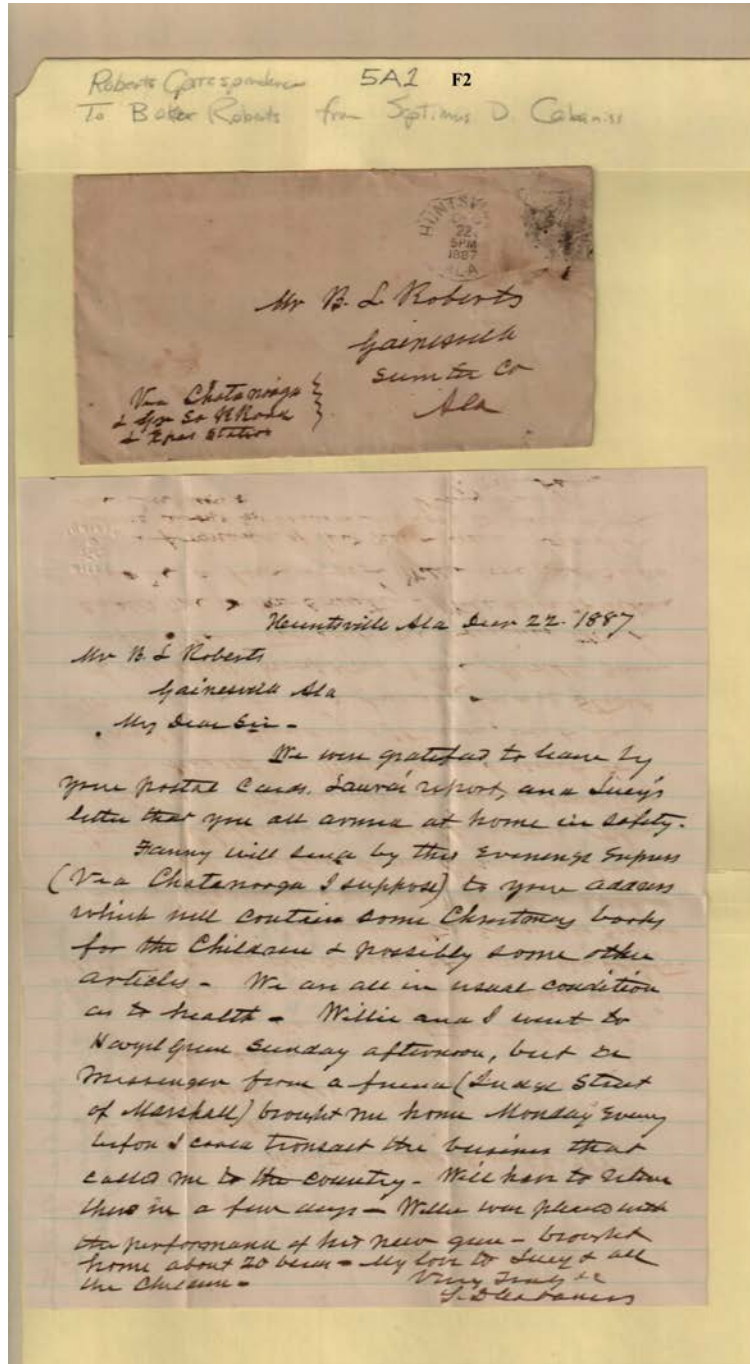 Roberts Correspondence 5A1 F2
To Baker Roberts from Septimus D. Cabaniss
HUNTSVI
22
5PM
1887
ALA
Mr B. L Roberts
Gainesville
Sumter Co
Ala
Via Chatanooga
& Gr So RRoad
& Epes Station
Huntsville Ala Decr 22. 1887
Mr B L Roberts
Gainesville Ala
My Dear Sir -
We were gratified to learn by
your postal cards. Laura's report, and Lucy's
letter that you all arrived at home in safety.
Fanny will send by this Evenings Express
(Via Chatanooga I suppose) to your address
which will contain some Christmas books
for the Children & possibly some other
articles - We are all in usual condition
as to health - Willie and I went to
Green Sunday afternoon, but
messenger from a friend (Judge Street
of Marshall) brought me home Monday Eveng
before I could transact the business that
called me to the country - Will have to return
there in a few days - Willie was pleased with
the performance of his new gun - brought
home about 20 - My love to Lucy & all
the Children -
Very Truly &c
S. D Cabaniss